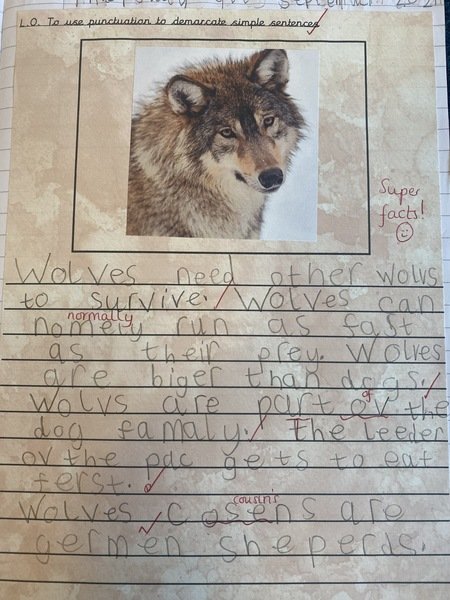 L.O. To use punctuation to demarcate simple sentences
Super
facts!
Wolves need other wolvs
to survive. Wolves can
normally
nomely run as fast
as their prey. Wolves
are biger than dogs.
of
Wolvs are part ov the
dog famaly. The leeder
ov the pac gets to eat
ferst.
cousin's
Wolves cosens are
germen sheperds.